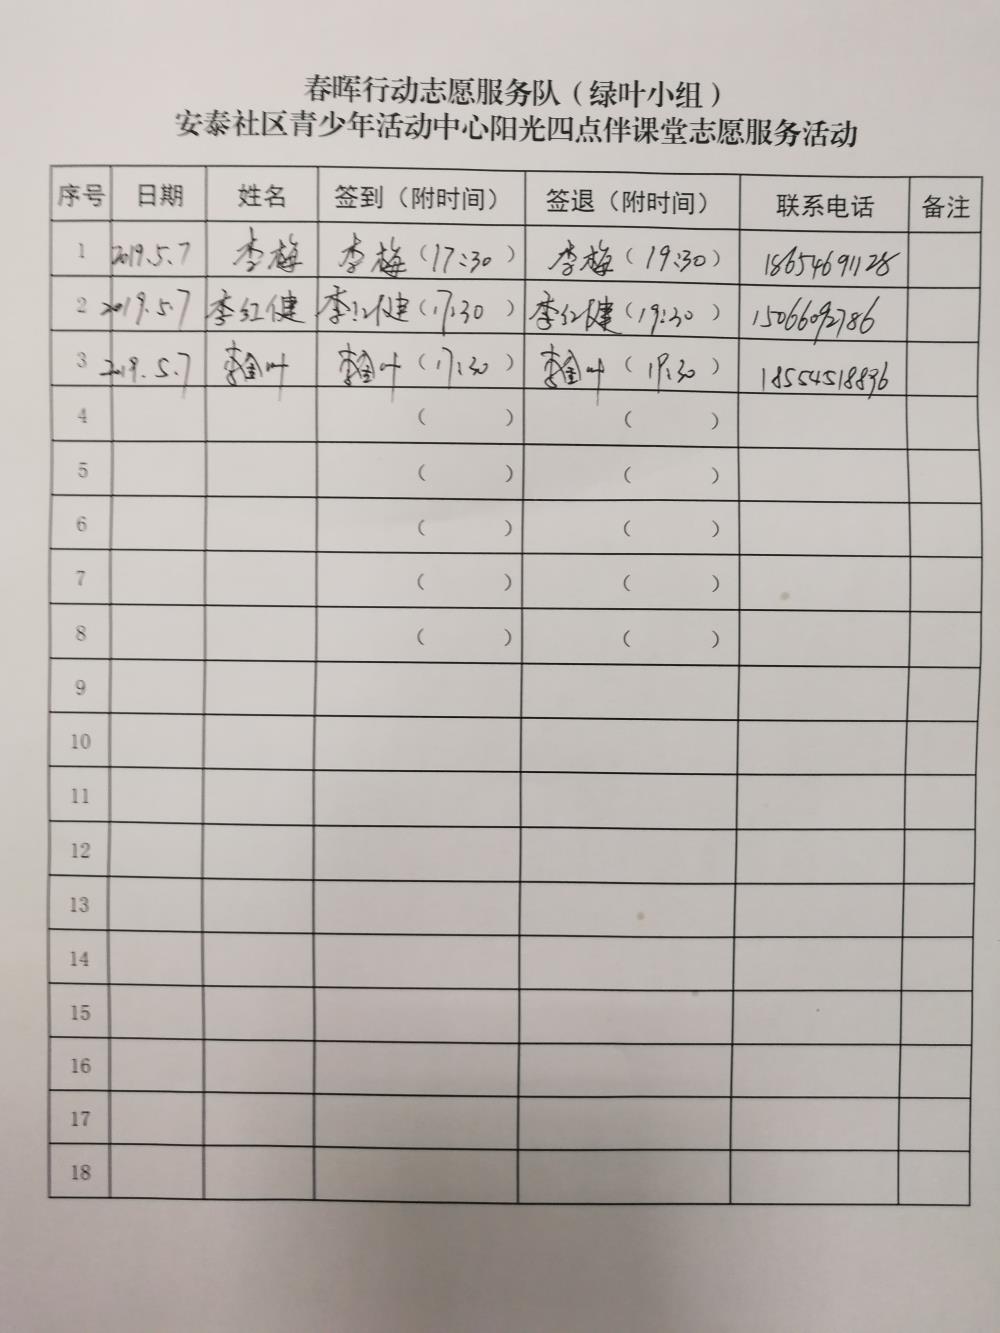 春晖行动志愿服务队（绿叶小组）
安泰社区青少年活动中心阳光四点伴课堂志愿服务活动
序号 日期 姓名 签到（附时间） 签退（附时间） 联系电话 备注
1 2019.5.7 李梅 李梅（17:30） 李梅（19:30） 18654691128
2 2019.5.7 李红健 李红健（17:30） 李红健（19:30） 15066092786
3 2019.5.7 李金叶 李金叶（17:30） 李金叶（19:30） 18554518896
4 （ ） （ ）
5 （ ） （ ）
6 （ ） （ ）
7 （ ） （ ）
8 （ ） （ ）
9
10
11
12
13
14
15
16
17
18